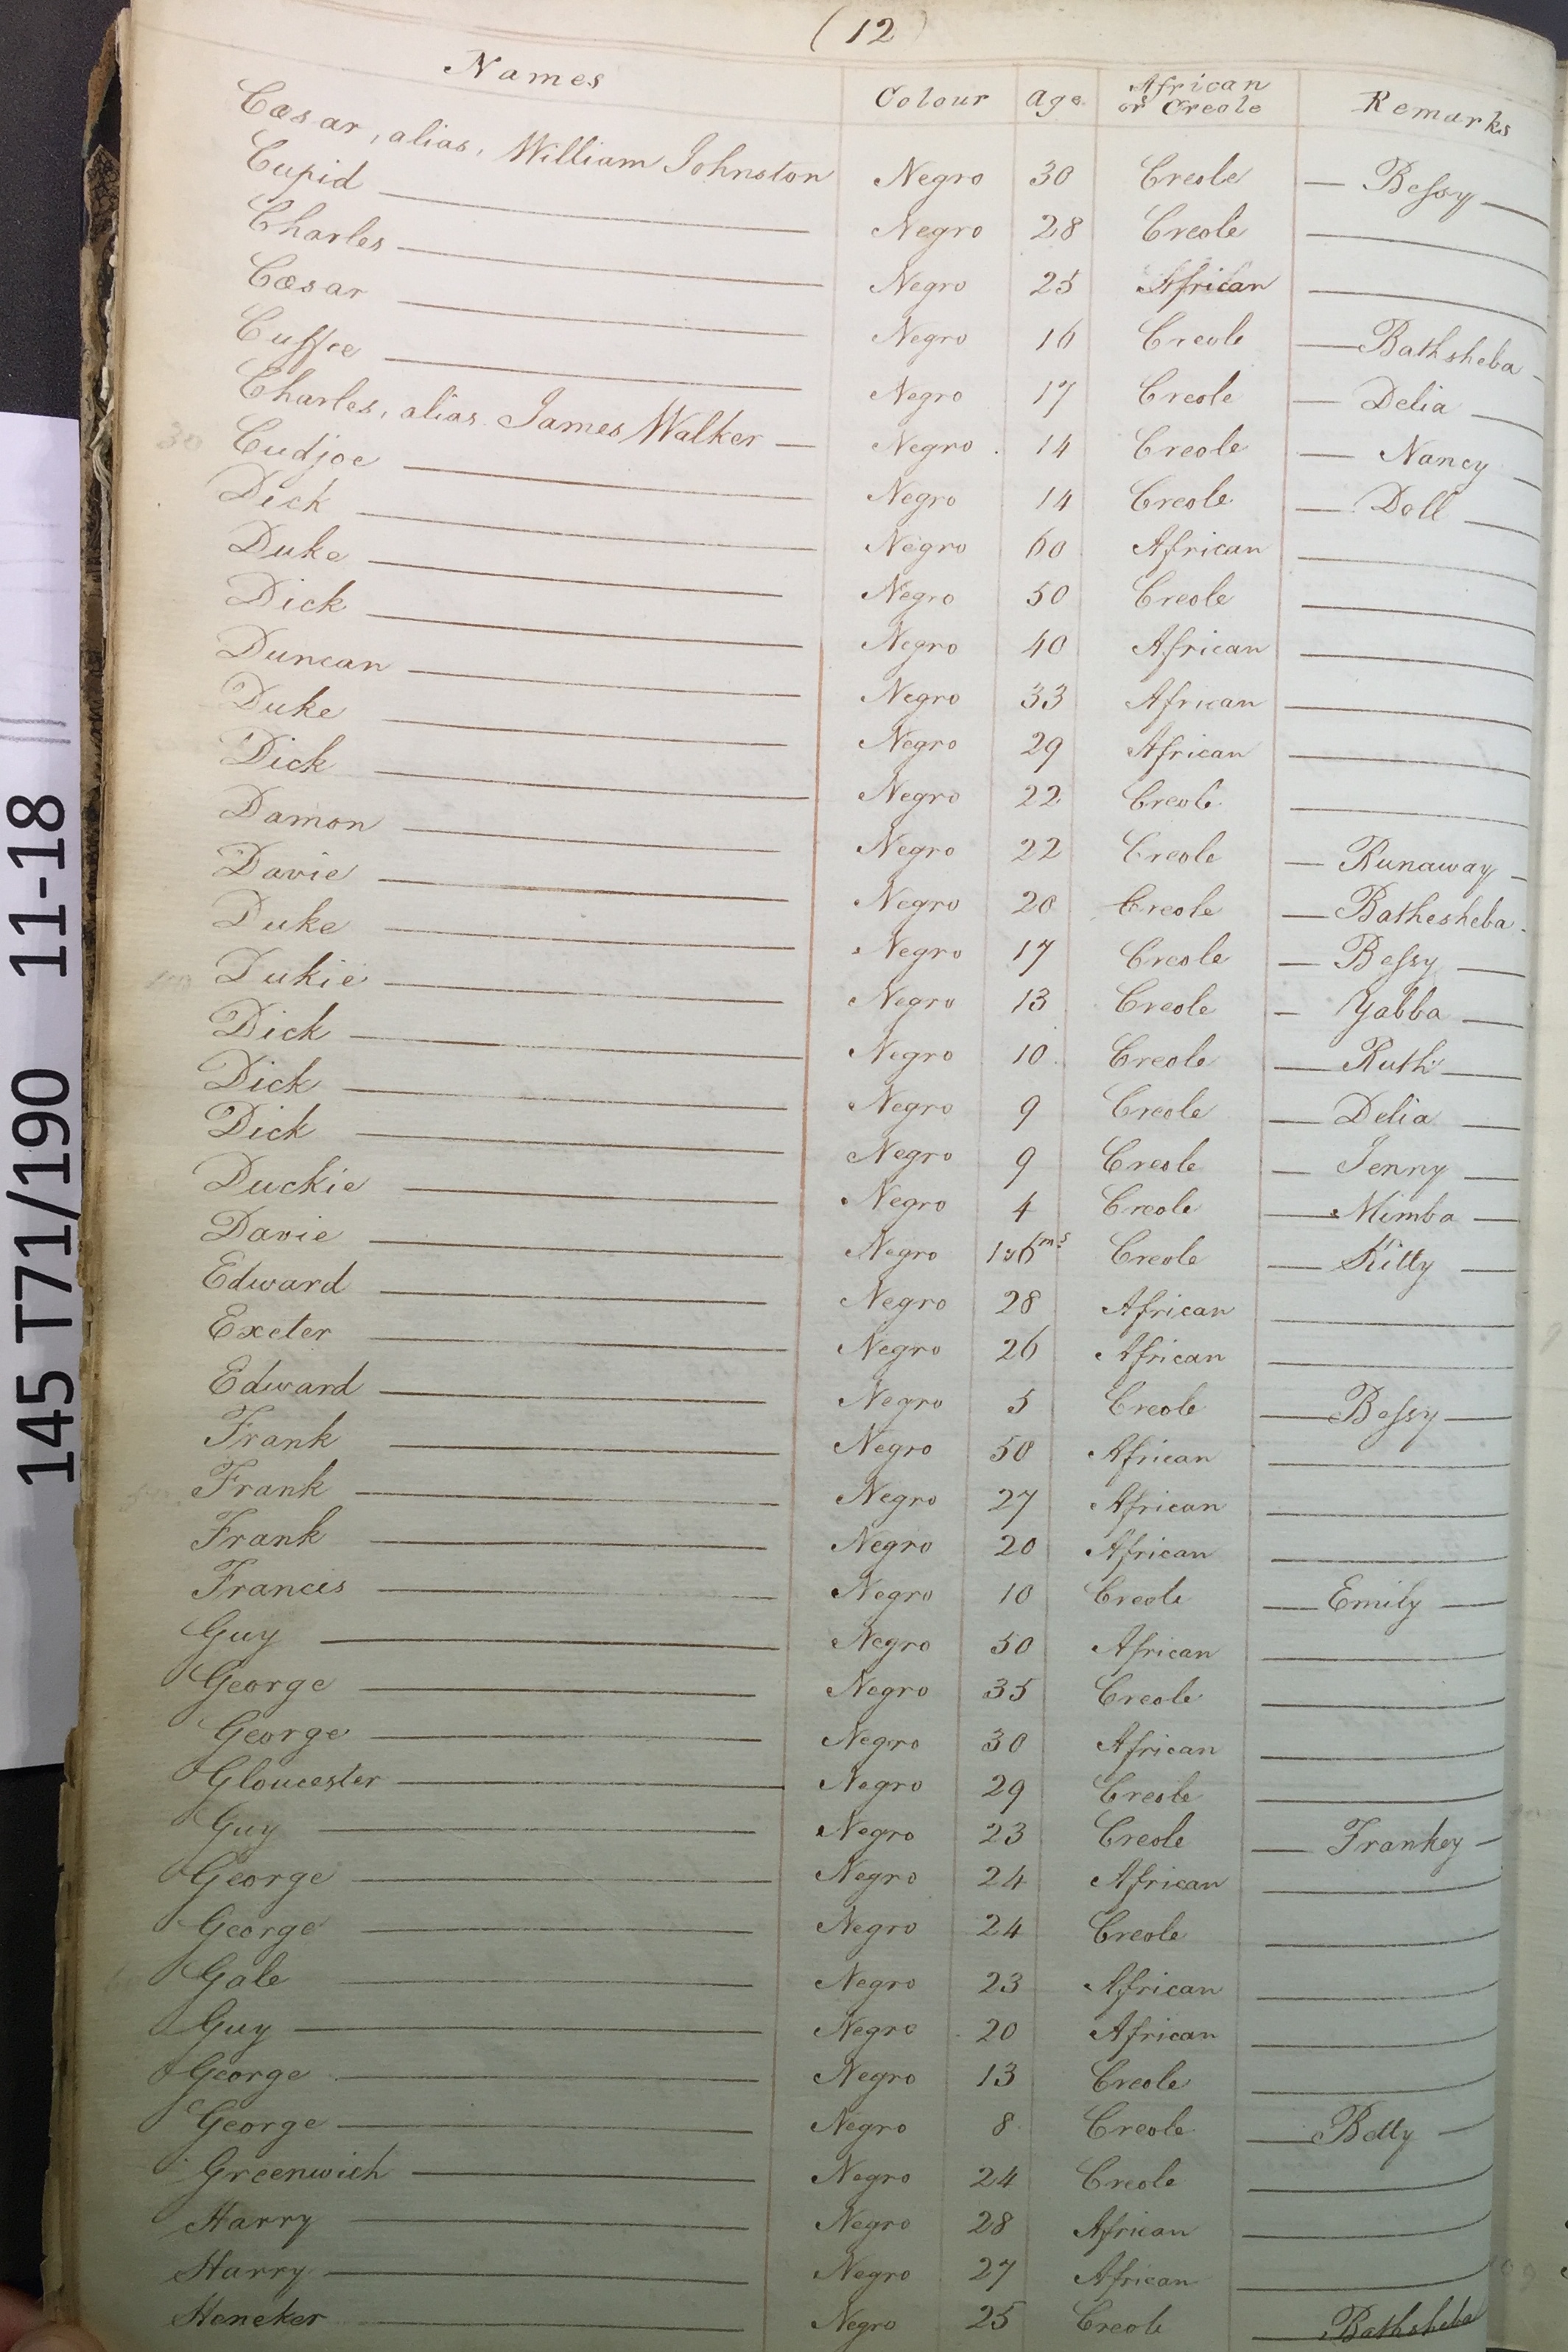 (12)
Names Colour Age African or Creole Remarks
Cæsar, alias, William Johnston Negro 30 Creole — Bessy —
Cupid Negro 28 Creole
Charles Negro 25 African
Cæsar Negro 16 Creole — Bathsheba
Cuffee Negro 17 Creole — Delia —
Charles, alias James Walker — Negro 14 Creole — Nancy
Cudjoe Negro 14 Creole — Doll —
Dick Negro 60 African
Duke Negro 50 Creole
Dick Negro 40 African
Duncan Negro 33 African
Duke Negro 29 African
Dick Negro 22 Creole
Damon Negro 22 Creole — Runaway —
Davie Negro 20 Creole — Bathesheba
Duke Negro 17 Creole — Bessy —
Dukie Negro 13 Creole — Yabba —
Dick Negro 10 Creole — Ruth —
Dick Negro 9 Creole — Delia —
Dick Negro 9 Creole — Jenny —
Duckie Negro 4 Creole — Mimba —
Davie Negro Creole — Kitty —
Edward Negro 28 African
Exeter Negro 26 African
Edward Negro 5 Creole — Bessy —
Frank Negro 50 African
Frank Negro 27 African
Frank Negro 20 African
Francis Negro 10 Creole — Emily —
Guy Negro 50 African
George Negro 35 Creole
George Negro 30 African
Gloucester Negro 29 Creole
Guy Negro 23 Creole — Frankey —
George Negro 24 African
George Negro 24 Creole
Gale Negro 23 African
Guy Negro 20 African
George Negro 13 Creole
George Negro 8 Creole — Betty —
Greenwich Negro 24 Creole
Harry Negro 28 African
Harry Negro 27 African
Heneker Negro 25 Creole — Bathsheba
145 T71/190 11-18